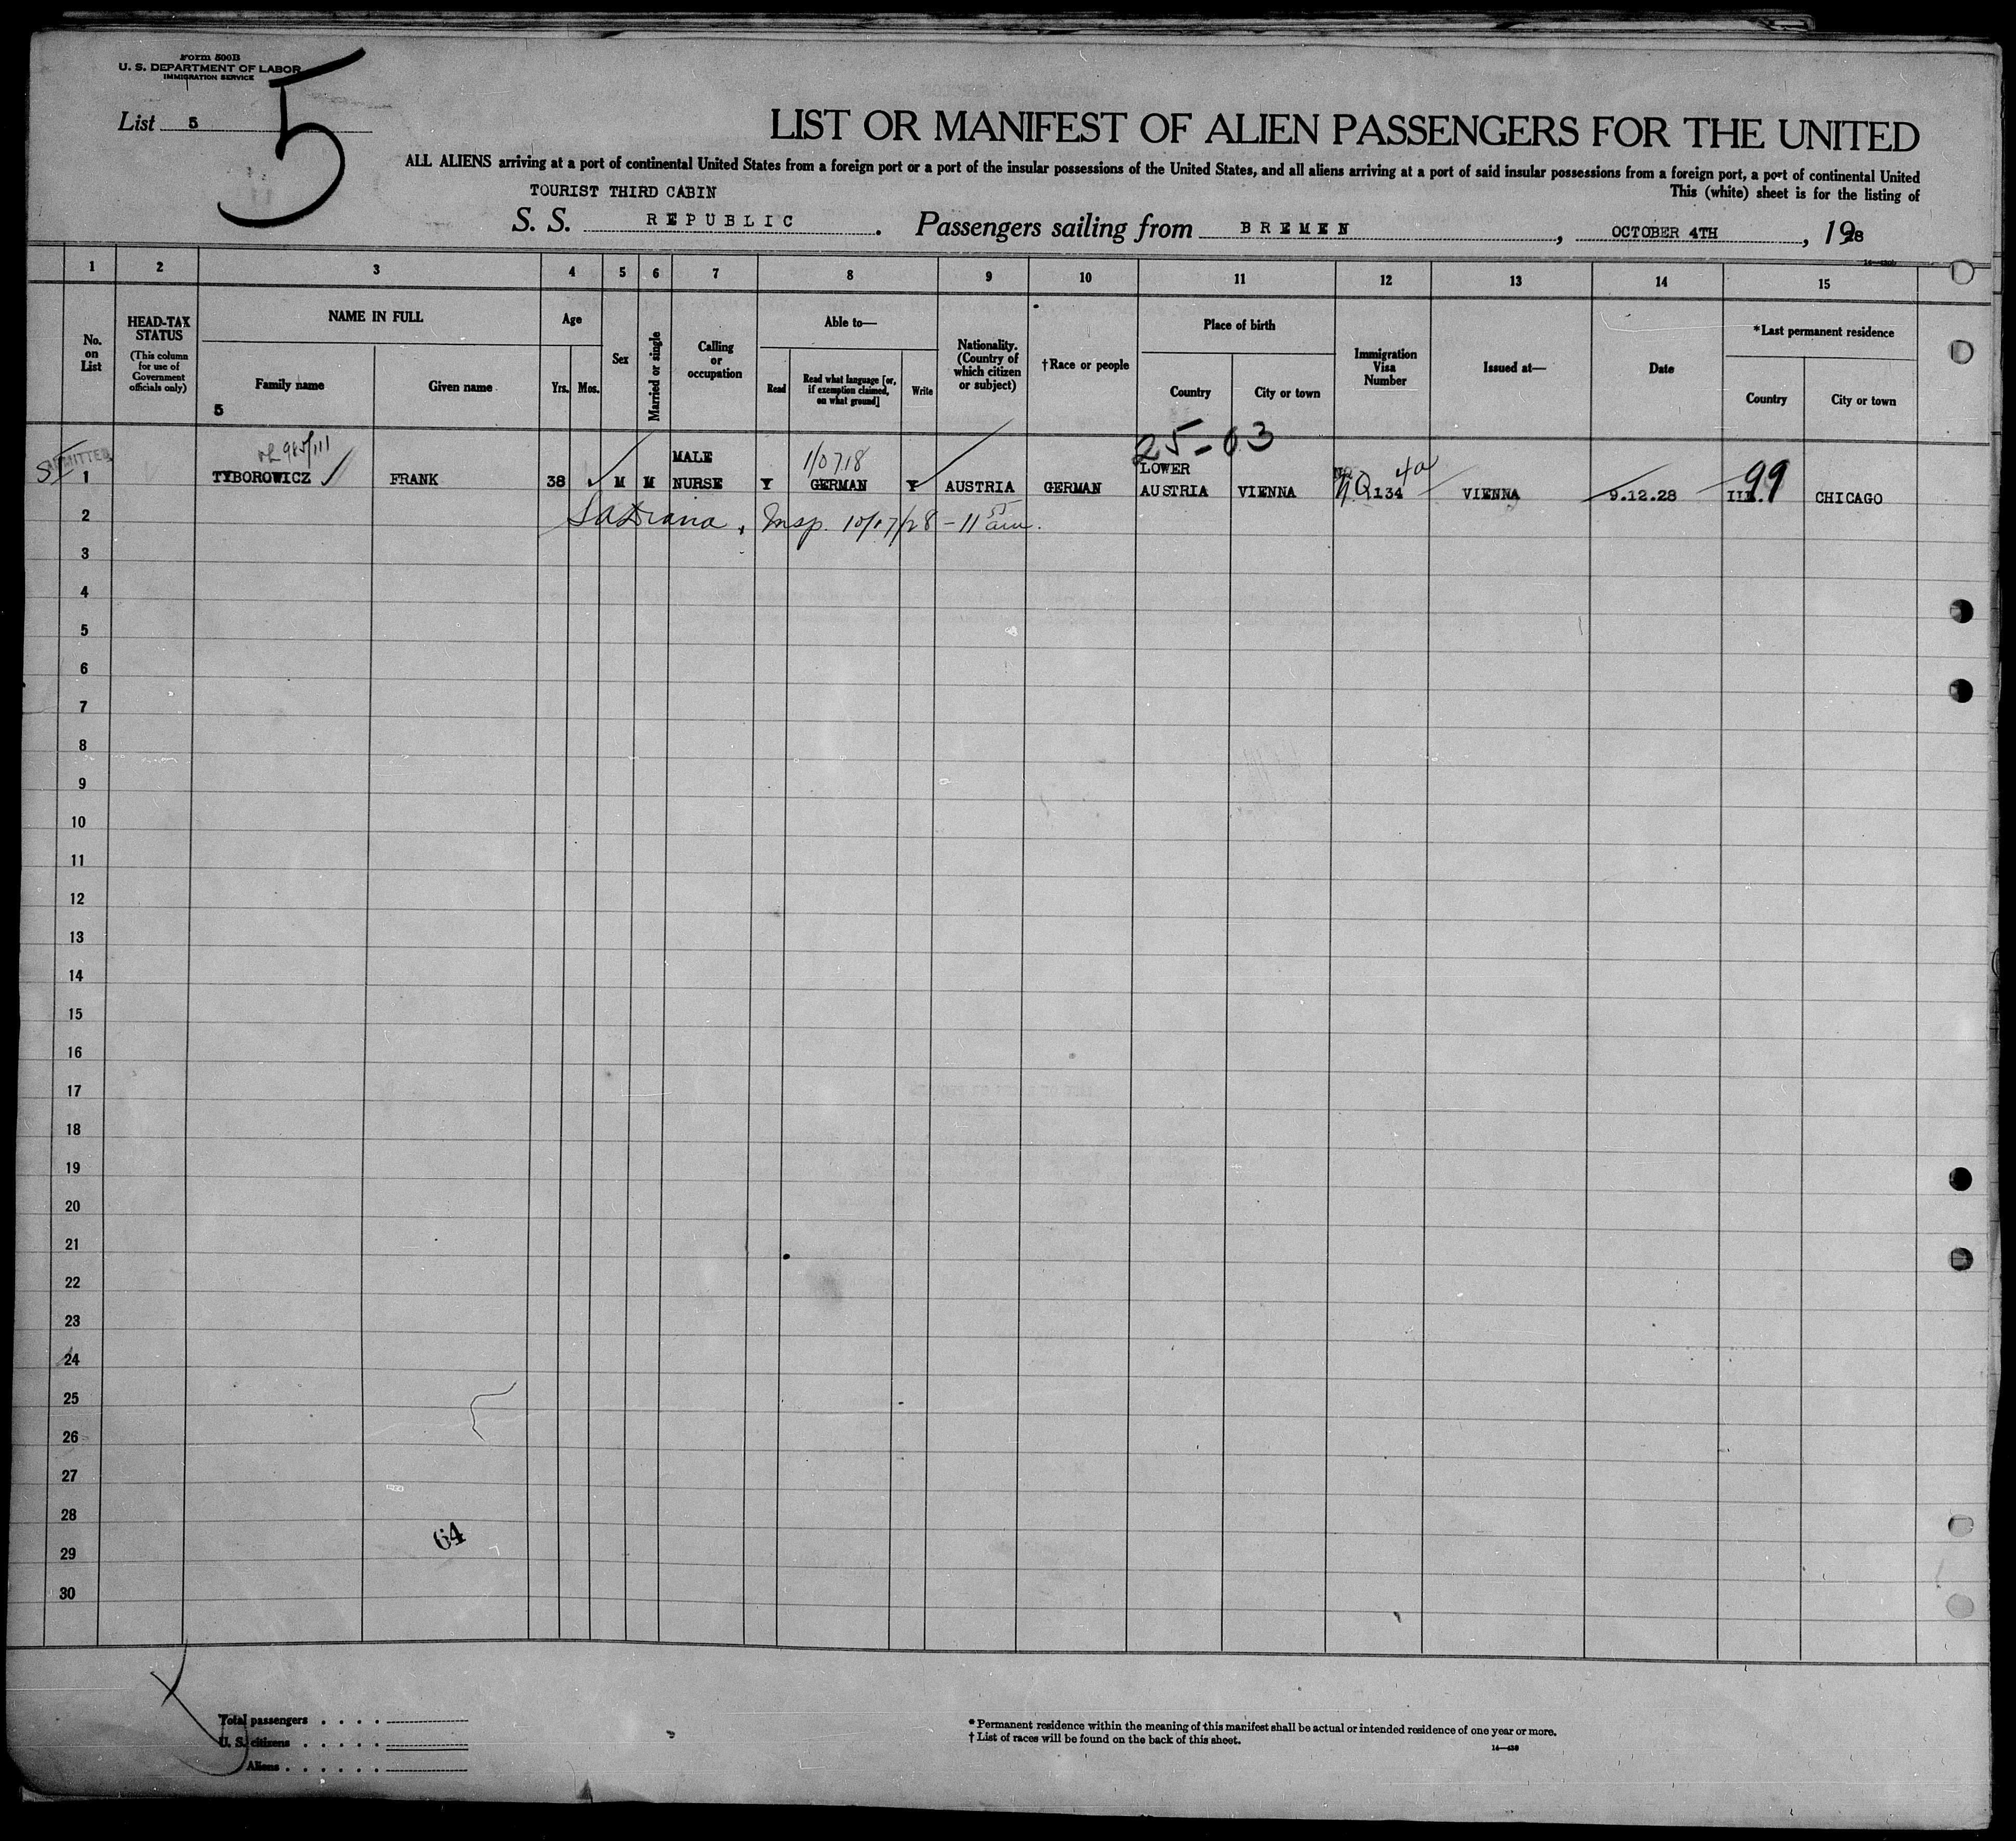 Form 500B
U. S. DEPARTMENT OF LABOR
IMMIGRATION SERVICE
List 5
5
LIST OR MANIFEST OF ALIEN PASSENGERS FOR THE UNITED
ALL ALIENS arriving at a port of continental United States from a foreign port or a port of the insular possessions of the United States, and all aliens arriving at a port of said insular possessions from a foreign port, a port of continental United
This (white) sheet is for the listing of
TOURIST THIRD CABIN
S. S. REPUBLIC. Passengers sailing from BREMEN, OCTOBER 4TH, 1928
1 2 3 4 5 6 7 8 9 10 11 12 13 14 15
No. on List
HEAD-TAX STATUS
(This column for use of Government officials only)
NAME IN FULL
Family name
Given name
5
Age
Yrs. Mos.
Sex
Married or single
Calling or occupation
Able to—
Read
Read what language [or, if exemption claimed, on what ground]
Write
Nationality. (Country of which citizen or subject)
†Race or people
Place of birth
Country
City or town
Immigration Visa Number
Issued at—
Date
*Last permanent residence
Country
City or town
25-03
ADMITTED
1 TYBOROWICZ FRANK 38 M M MALE NURSE Y GERMAN Y AUSTRIA GERMAN LOWER AUSTRIA VIENNA N.Q.134 VIENNA 9.12.28 ILL. CHICAGO
99
2
Insp. 10/17/28 - 11 am.
3
4
5
6
7
8
9
10
11
12
13
14
15
16
17
18
19
20
21
22
23
24
25
26
27
28
29
30
64
Total passengers . . . .
U. S. citizens . . . . .
Aliens . . . . . .
* Permanent residence within the meaning of this manifest shall be actual or intended residence of one year or more.
† List of races will be found on the back of this sheet.
14—438